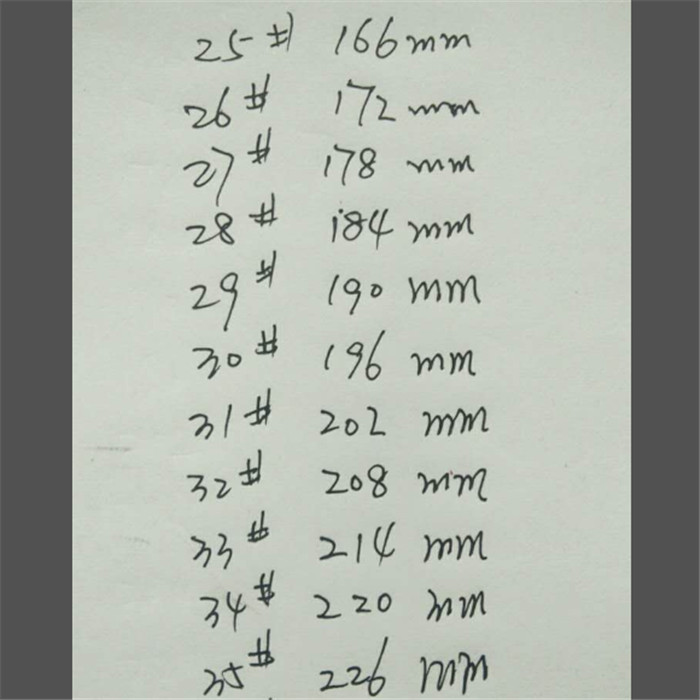 25# 166mm
26# 172mm
27# 178mm
28# 184mm
29# 190mm
30# 196mm
31# 202mm
32# 208mm
33# 214mm
34# 220mm
35# 226mm